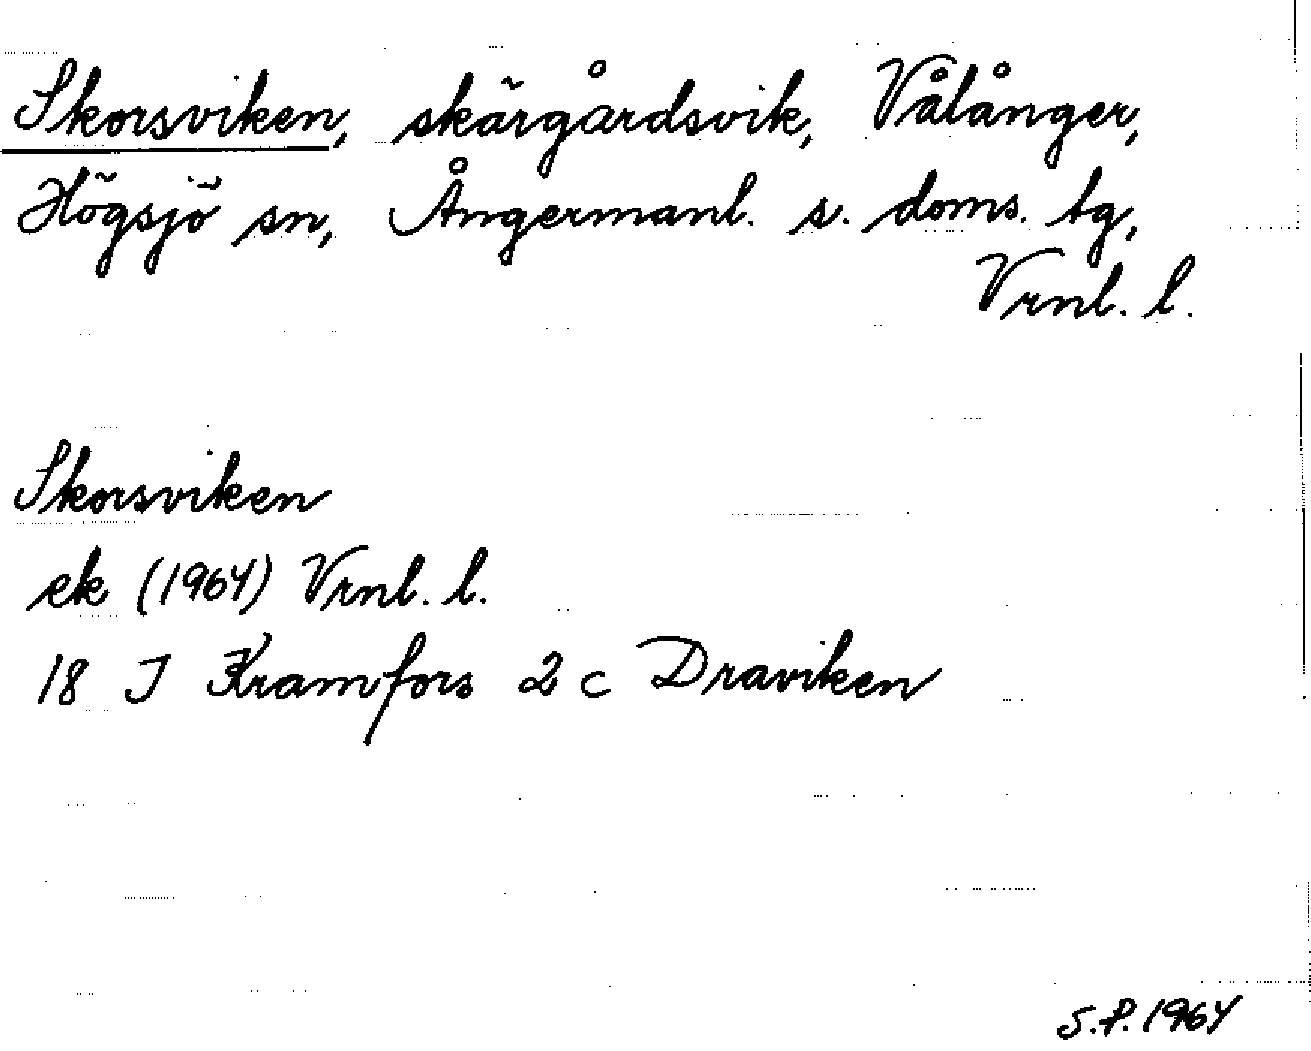 Skorsviken, skärgårdsvik, Vålånger,
Högsjö sn, Ångermanl. s. doms. tg,
Vrnl. l.
Skorsviken
ek (1964) Vrnl. l.
18 J Kramfors 2 c Draviken
S.P. 1964